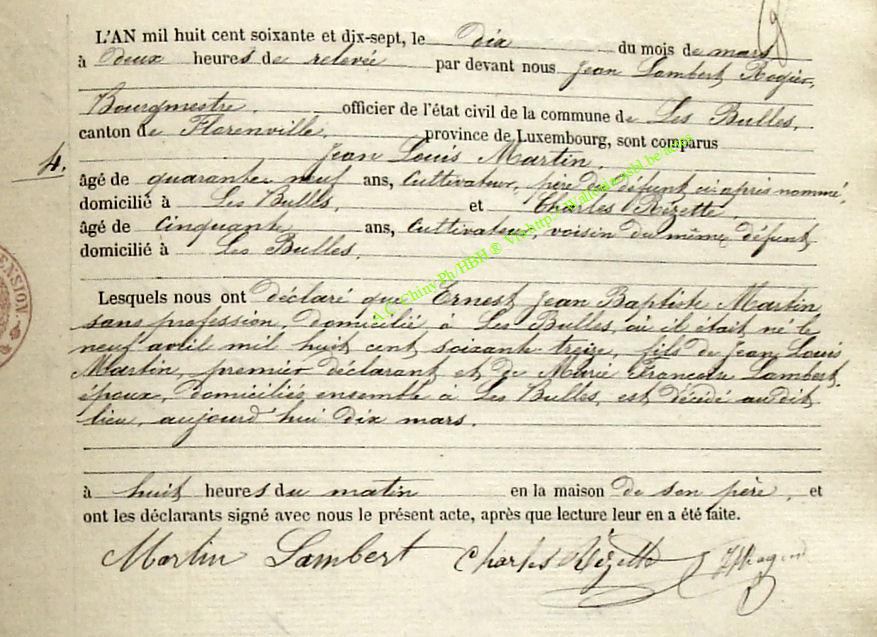 L'AN mil huit cent soixante et dix-sept, le dix du mois de mars
à deux heures de relevée par devant nous Jean Lambert Rogier,
Bourgmestre, officier de l'état civil de la commune de Les Bulles,
canton de Florenville, province de Luxembourg, sont comparus
4. Jean Louis Martin,
âgé de quarante neuf ans, Cultivateur, père du défunt ci après nommé,
domicilié à Les Bulles, et Charles Rizette,
âgé de Cinquante ans, Cultivateur, voisin du même défunt
domicilié à Les Bulles.
Lesquels nous ont déclaré que Ernest Jean Baptiste Martin
sans profession, domicilié à Les Bulles, où il était né le
neuf avril mil huit cent soixante treize, fils de Jean Louis
Martin, premier déclarant et de Marie Françoise Lambert
époux, domiciliés ensemble à Les Bulles, est décédé audit
lieu, aujourd'hui dix mars.
à huit heures du matin en la maison de son père, et
ont les déclarants signé avec nous le présent acte, après que lecture leur en a été faite.
Martin Lambert Charles Rizette
ENSION
A.C. Chiny Ph/HBH ®